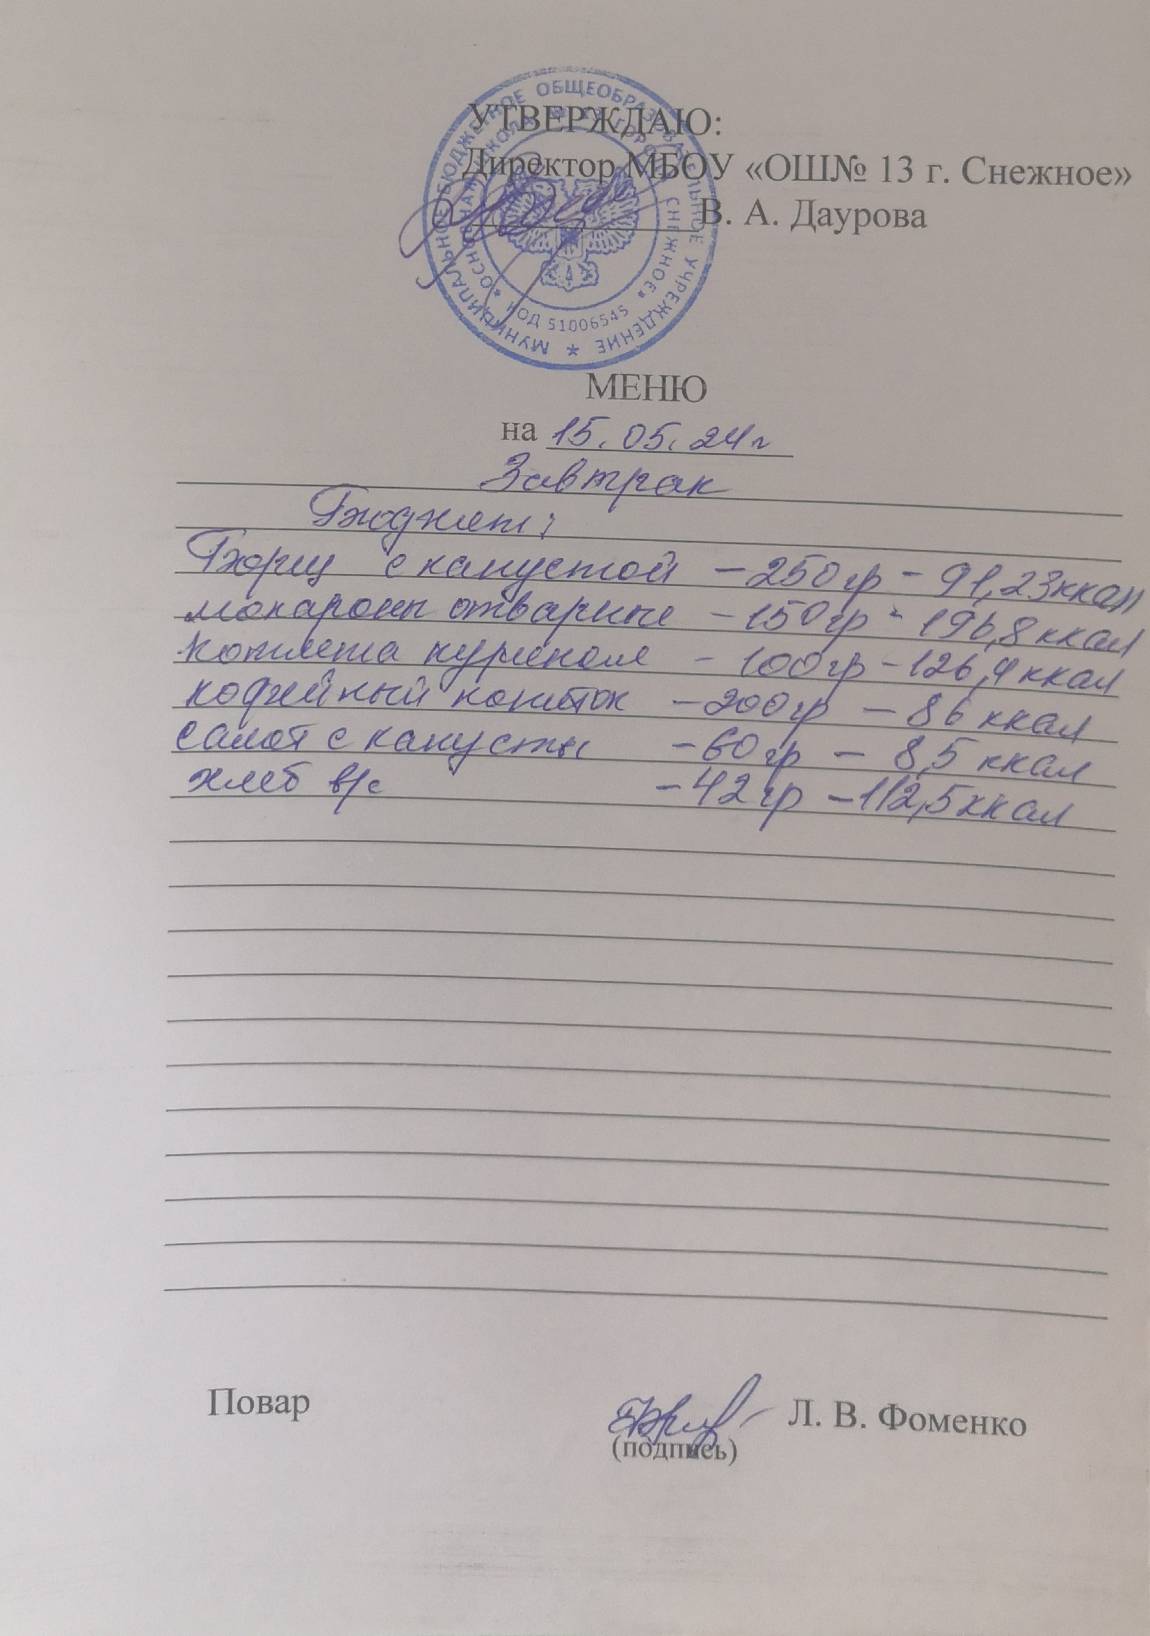 УТВЕРЖДАЮ:
Директор МБОУ «ОШ№ 13 г. Снежное»
В. А. Даурова
МУНИЦИПАЛЬНОЕ БЮДЖЕТНОЕ ОБЩЕОБРАЗОВАТЕЛЬНОЕ УЧРЕЖДЕНИЕ
СНЕЖНОЕ»
КОД 51006545
МЕНЮ
на 15.05.24г
Завтрак
Бюджет:
Борщ с капустой – 250гр – 91,23ккал
макароны отварные – 150гр – 196,8ккал
котлета куриная – 100гр – 126,4ккал
кофейный напиток – 200гр – 86 ккал
салат с капусты – 60гр – 8,5 ккал
хлеб в/с – 42гр – 112,5ккал
Повар
Л. В. Фоменко
(подпись)